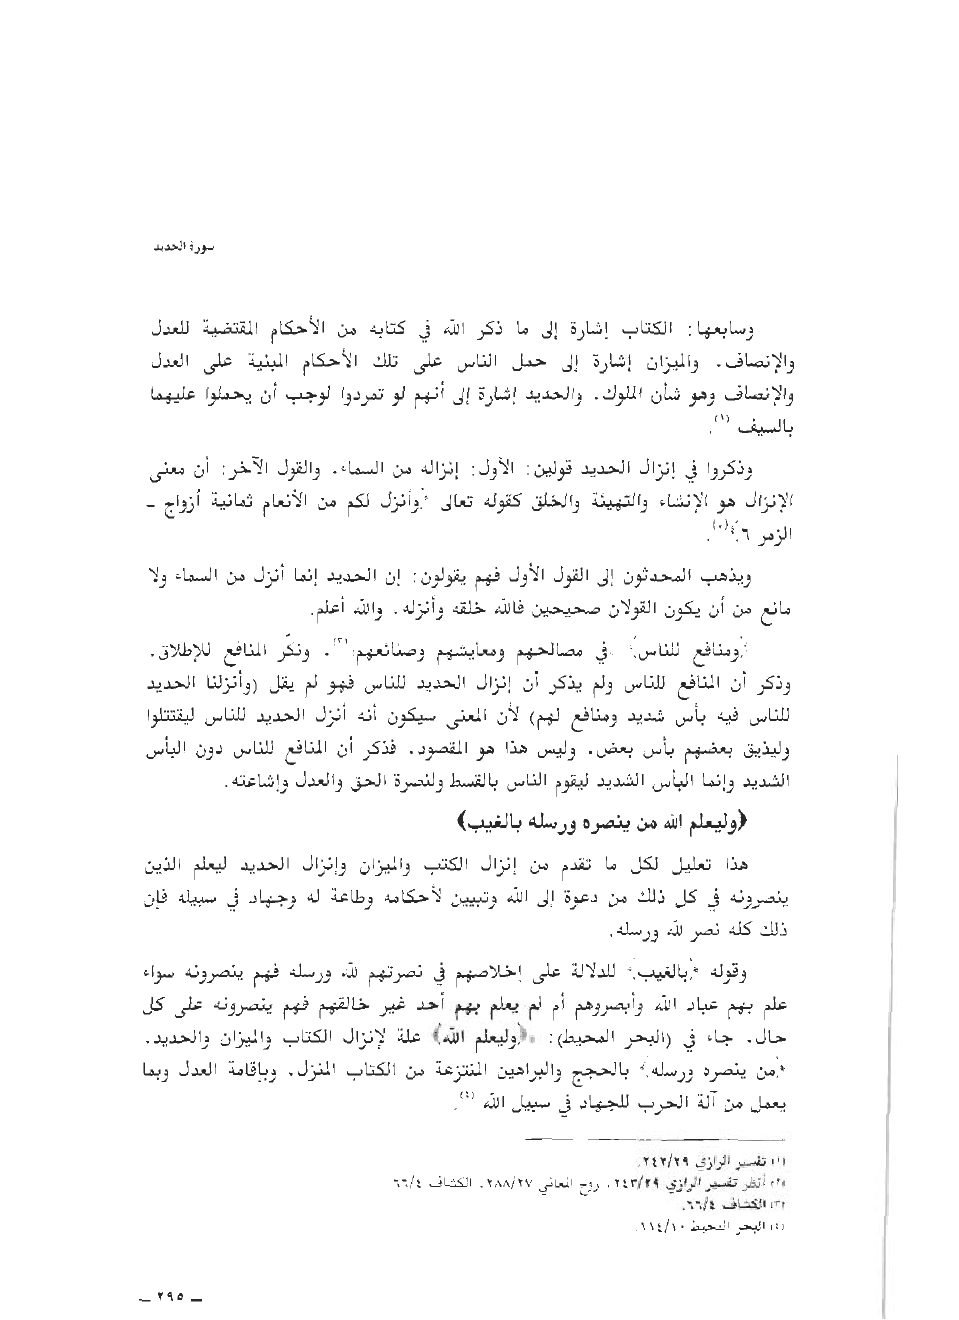 سورة الحديد
وسابعها: الكتاب إشارة إلى ما ذكر الله في كتابه من الأحكام المقتضية للعدل
والإنصاف. والميزان إشارة إلى حمل الناس على تلك الأحكام المبنية على العدل
والإنصاف وهو شأن الملوك. والحديد إشارة إلى أنهم لو تمردوا لوجب أن يحملوا عليهما
بالسيف (١).
وذكروا في إنزال الحديد قولين: الأول: إنزاله من السماء. والقول الآخر: أن معنى
الإنزال هو الإنشاء والتهيئة والخلق كقوله تعالى ﴿وأنزل لكم من الأنعام ثمانية أزواج ـ
الزمر ٦﴾(٢).
ويذهب المحدثون إلى القول الأول فهم يقولون: إن الحديد إنما أنزل من السماء ولا
مانع من أن يكون القولان صحيحين فالله خلقه وأنزله. والله أعلم.
﴿ومنافع للناس﴾ في مصالحهم ومعايشهم وصنائعهم(٣). ونكّر المنافع للإطلاق.
وذكر أن المنافع للناس ولم يذكر أن إنزال الحديد للناس فهو لم يقل (وأنزلنا الحديد
للناس فيه بأس شديد ومنافع لهم) لأن المعنى سيكون أنه أنزل الحديد للناس ليقتتلوا
وليذيق بعضهم بأس بعض. وليس هذا هو المقصود. فذكر أن المنافع للناس دون البأس
الشديد وإنما البأس الشديد ليقوم الناس بالقسط ولنصرة الحق والعدل وإشاعته.
﴿وليعلم الله من ينصره ورسله بالغيب﴾
هذا تعليل لكل ما تقدم من إنزال الكتب والميزان وإنزال الحديد ليعلم الذين
ينصرونه في كل ذلك من دعوة إلى الله وتبيين لأحكامه وطاعة له وجهاد في سبيله فإن
ذلك كله نصر لله ورسله.
وقوله ﴿بالغيب﴾ للدلالة على إخلاصهم في نصرتهم لله ورسله فهم ينصرونه سواء
علم بهم عباد الله وأبصروهم أم لم يعلم بهم أحد غير خالقهم فهم ينصرونه على كل
حال. جاء في (البحر المحيط): «﴿وليعلم الله﴾ علة لإنزال الكتاب والميزان والحديد.
﴿من ينصره ورسله﴾ بالحجج والبراهين المنتزعة من الكتاب المنزل. وبإقامة العدل وبما
يعمل من آلة الحرب للجهاد في سبيل الله (٤).
(١) تفسير الرازي ٢٤٢/٢٩.
(٢) أنظر تفسير الرازي ٢٤٣/٢٩، روح المعاني ٢٨٨/٢٧، الكشاف ٦٦/٤
(٣) الكشاف ٦٦/٤.
(٤) البحر المحيط ١١٤/١٠.
ـ ٢٩٥ ـ